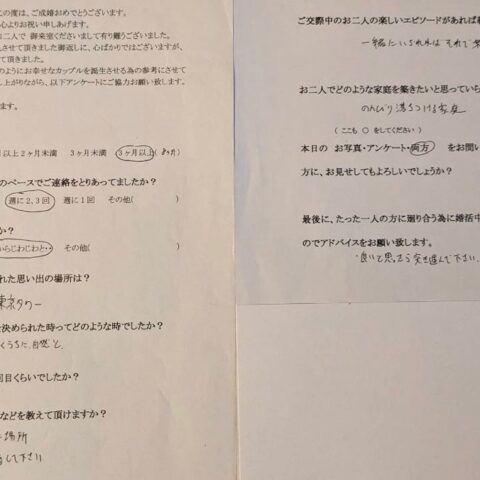 の度は、ご成婚おめでとうございます。
心よりお祝い申しあげます。
お二人で 御来室くださいまして有り難うございました。
させて頂きました御返しに、心ばかりではございますが、
て頂きました。
のようにお幸せなカップルを誕生させる為の参考にさせて
し上がりながら、以下アンケートにご協力お願い致します。
ます。
以上2ヶ月未満 3ヶ月未満 3ヶ月以上(8ヶ月)
のペースでご連絡をとりあってましたか？
週に2,3回 週に1回 その他( )
か？
からじわじわと・・ その他( )
れた思い出の場所は？
東京タワー
を決められた時ってどのような時でしたか？
くうちに、自然と
回目くらいでしたか？
などを教えて頂けますか？
場所
して下さい
ご交際中のお二人の楽しいエピソードがあれば
一緒にいられれば それで
お二人でどのような家庭を築きたいと思っていら
のんびり過ごせる家庭
(ここも ○をしてください)
本日の お写真・アンケート・両方 をお問い
方に、お見せしてもよろしいでしょうか？
最後に、たった一人の方に廻り合う為に婚活中
のでアドバイスをお願い致します。
良いと思ったら突き進んで下さい。